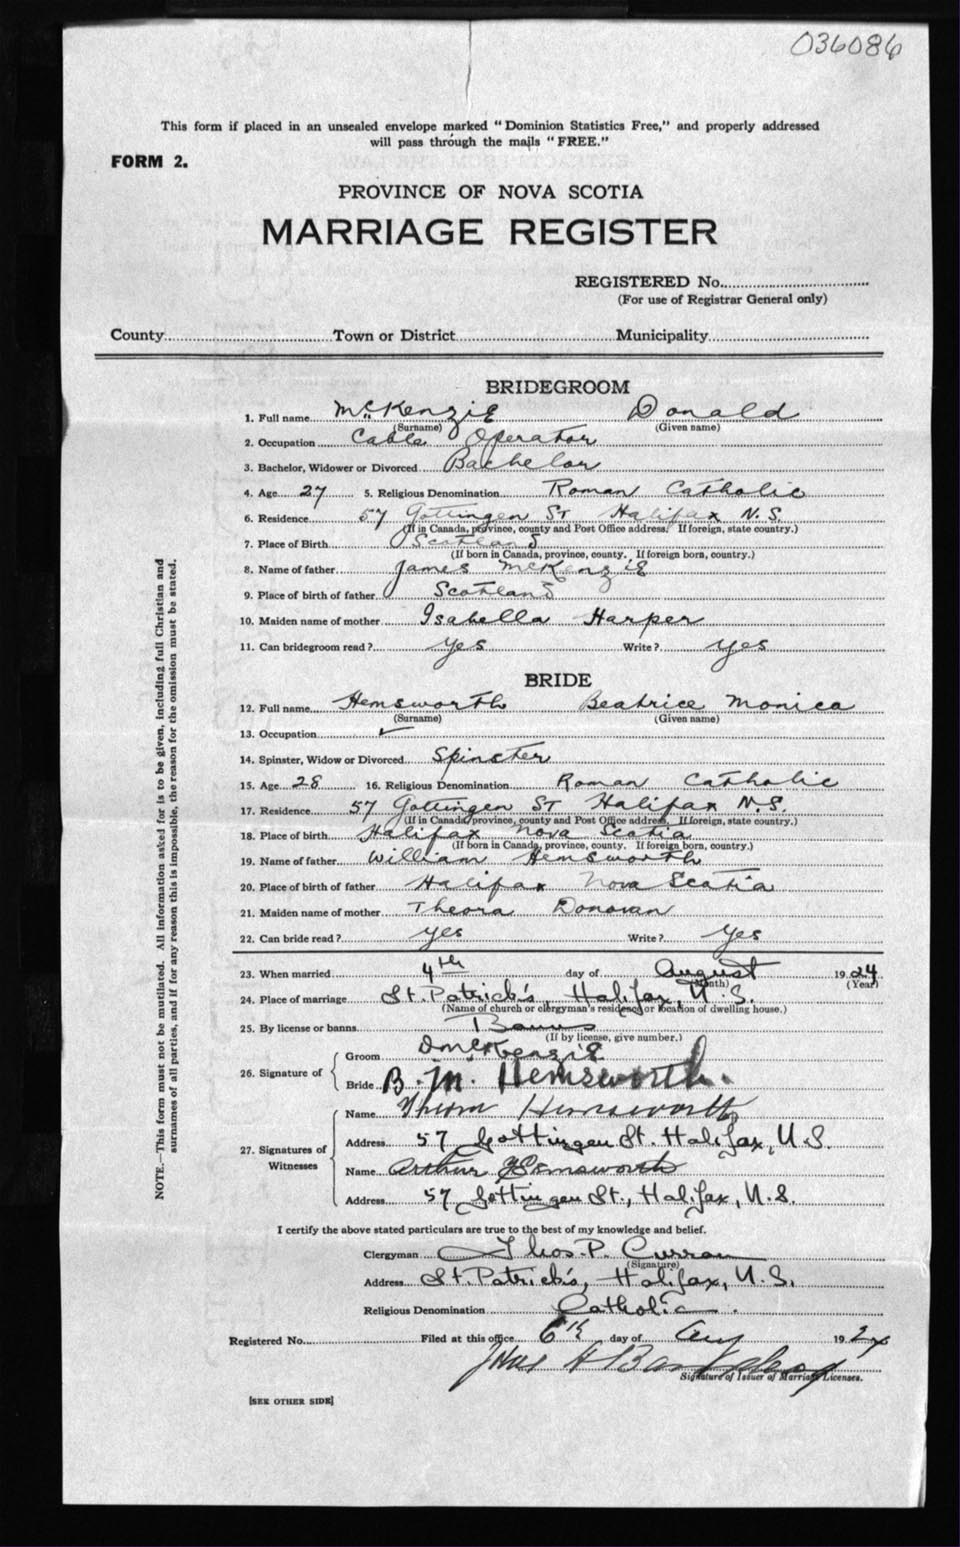 036086
This form if placed in an unsealed envelope marked "Dominion Statistics Free," and properly addressed
will pass through the mails "FREE."
FORM 2.
PROVINCE OF NOVA SCOTIA
MARRIAGE REGISTER
REGISTERED No.
(For use of Registrar General only)
County Town or District Municipality
BRIDEGROOM
1. Full name McKenzie Donald
(Surname) (Given name)
2. Occupation Cable Operator
3. Bachelor, Widower or Divorced Bachelor
4. Age 27 5. Religious Denomination Roman Catholic
6. Residence 57 Gottingen St Halifax N.S.
(If in Canada, province, county and Post Office address. If foreign, state country.)
7. Place of Birth Scotland
(If born in Canada, province, county. If foreign born, country.)
8. Name of father James McKenzie
9. Place of birth of father Scotland
10. Maiden name of mother Isabella Harper
11. Can bridegroom read? yes Write? yes
BRIDE
12. Full name Hemsworth Beatrice Monica
(Surname) (Given name)
13. Occupation
14. Spinster, Widow or Divorced Spinster
15. Age 28 16. Religious Denomination Roman Catholic
17. Residence 57 Gottingen St Halifax N.S.
(If in Canada, province, county and Post Office address. If foreign, state country.)
18. Place of birth Halifax Nova Scotia
(If born in Canada, province, county. If foreign born, country.)
19. Name of father William Hemsworth
20. Place of birth of father Halifax Nova Scotia
21. Maiden name of mother Theora Donovan
22. Can bride read? yes Write? Yes
23. When married 4th day of August 1924
(Month) (Year)
24. Place of marriage St. Patrick's, Halifax, N.S.
(Name of church or clergyman's residence or location of dwelling house.)
25. By license or banns Banns
(If by license, give number.)
26. Signature of
Groom D McKenzie
Bride B. M. Hemsworth.
27. Signatures of Witnesses
Name Hemsworth
Address 57 Gottingen St. Halifax, N.S.
Name Arthur Hemsworth
Address 57 Gottingen St., Halifax, N.S.
I certify the above stated particulars are true to the best of my knowledge and belief.
Clergyman Thos. P. Curran
(Signature)
Address St. Patrick's, Halifax, N.S.
Religious Denomination Catholic.
Registered No. Filed at this office 6th day of Aug 1924
Signature of Issuer of Marriage Licenses.
[SEE OTHER SIDE]
NOTE.—This form must not be mutilated. All information asked for is to be given, including full Christian and
surnames of all parties, and if for any reason this is impossible, the reason for the omission must be stated.